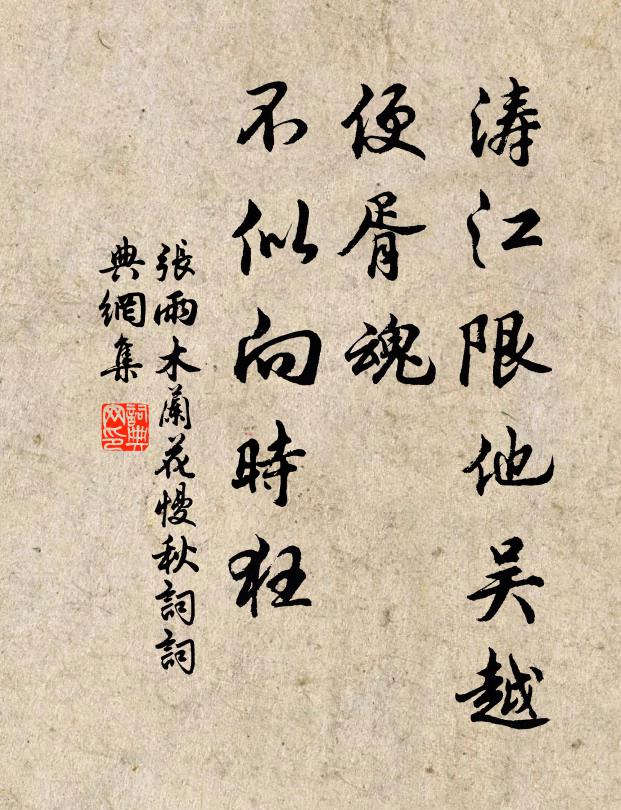 涛江限他吴越
便胥魂
不似向時狂
張雨木蘭花慢秋詞詞
典網集
詞典
网印